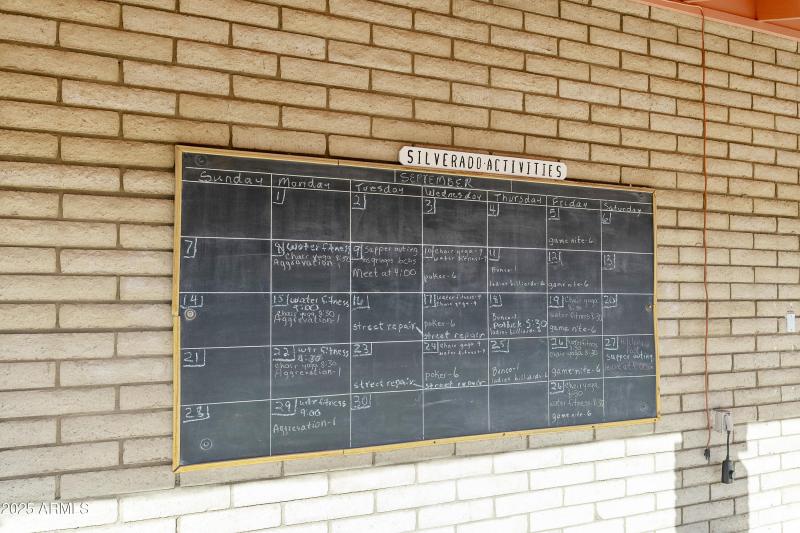 SILVERADO·ACTIVITIES
SEPTEMBER
Sunday Monday Tuesday Wednesday Thursday Friday Saturday
1
2
3
4
5
game nite-6
6
7
8 Water fitness
Chair yoga 8:30
Aggravation-1
9 Supper outing
Meet at 4:00
10 chair yoga-9
poker-6
11
Bunco-1
ladies billiards-6
12
game nite-6
13
14
15 Water fitness
9:00
chair yoga 8:30
Aggravation-1
16
street repair
17 water fitness-9
chair yoga 8:30
poker-6
street repair
18
Bunco-1
Potluck 5:30
ladies billiards-6
19 Chair yoga
8:30
water fitness
game nite-6
20
21
22 wtr fitness
8:30
chair yoga 8:30
Aggrevation-1
23
street repair
24 chair yoga
poker-6
street repair
25
Bunco-1
ladies billiards-6
26
chair yoga 8:30
game nite-6
27
Supper outing
28
29 wtr fitness
9:00
Aggrevation-1
30
26 Chair yoga
water fitness 8:30
game nite-6
2025 ARMLS